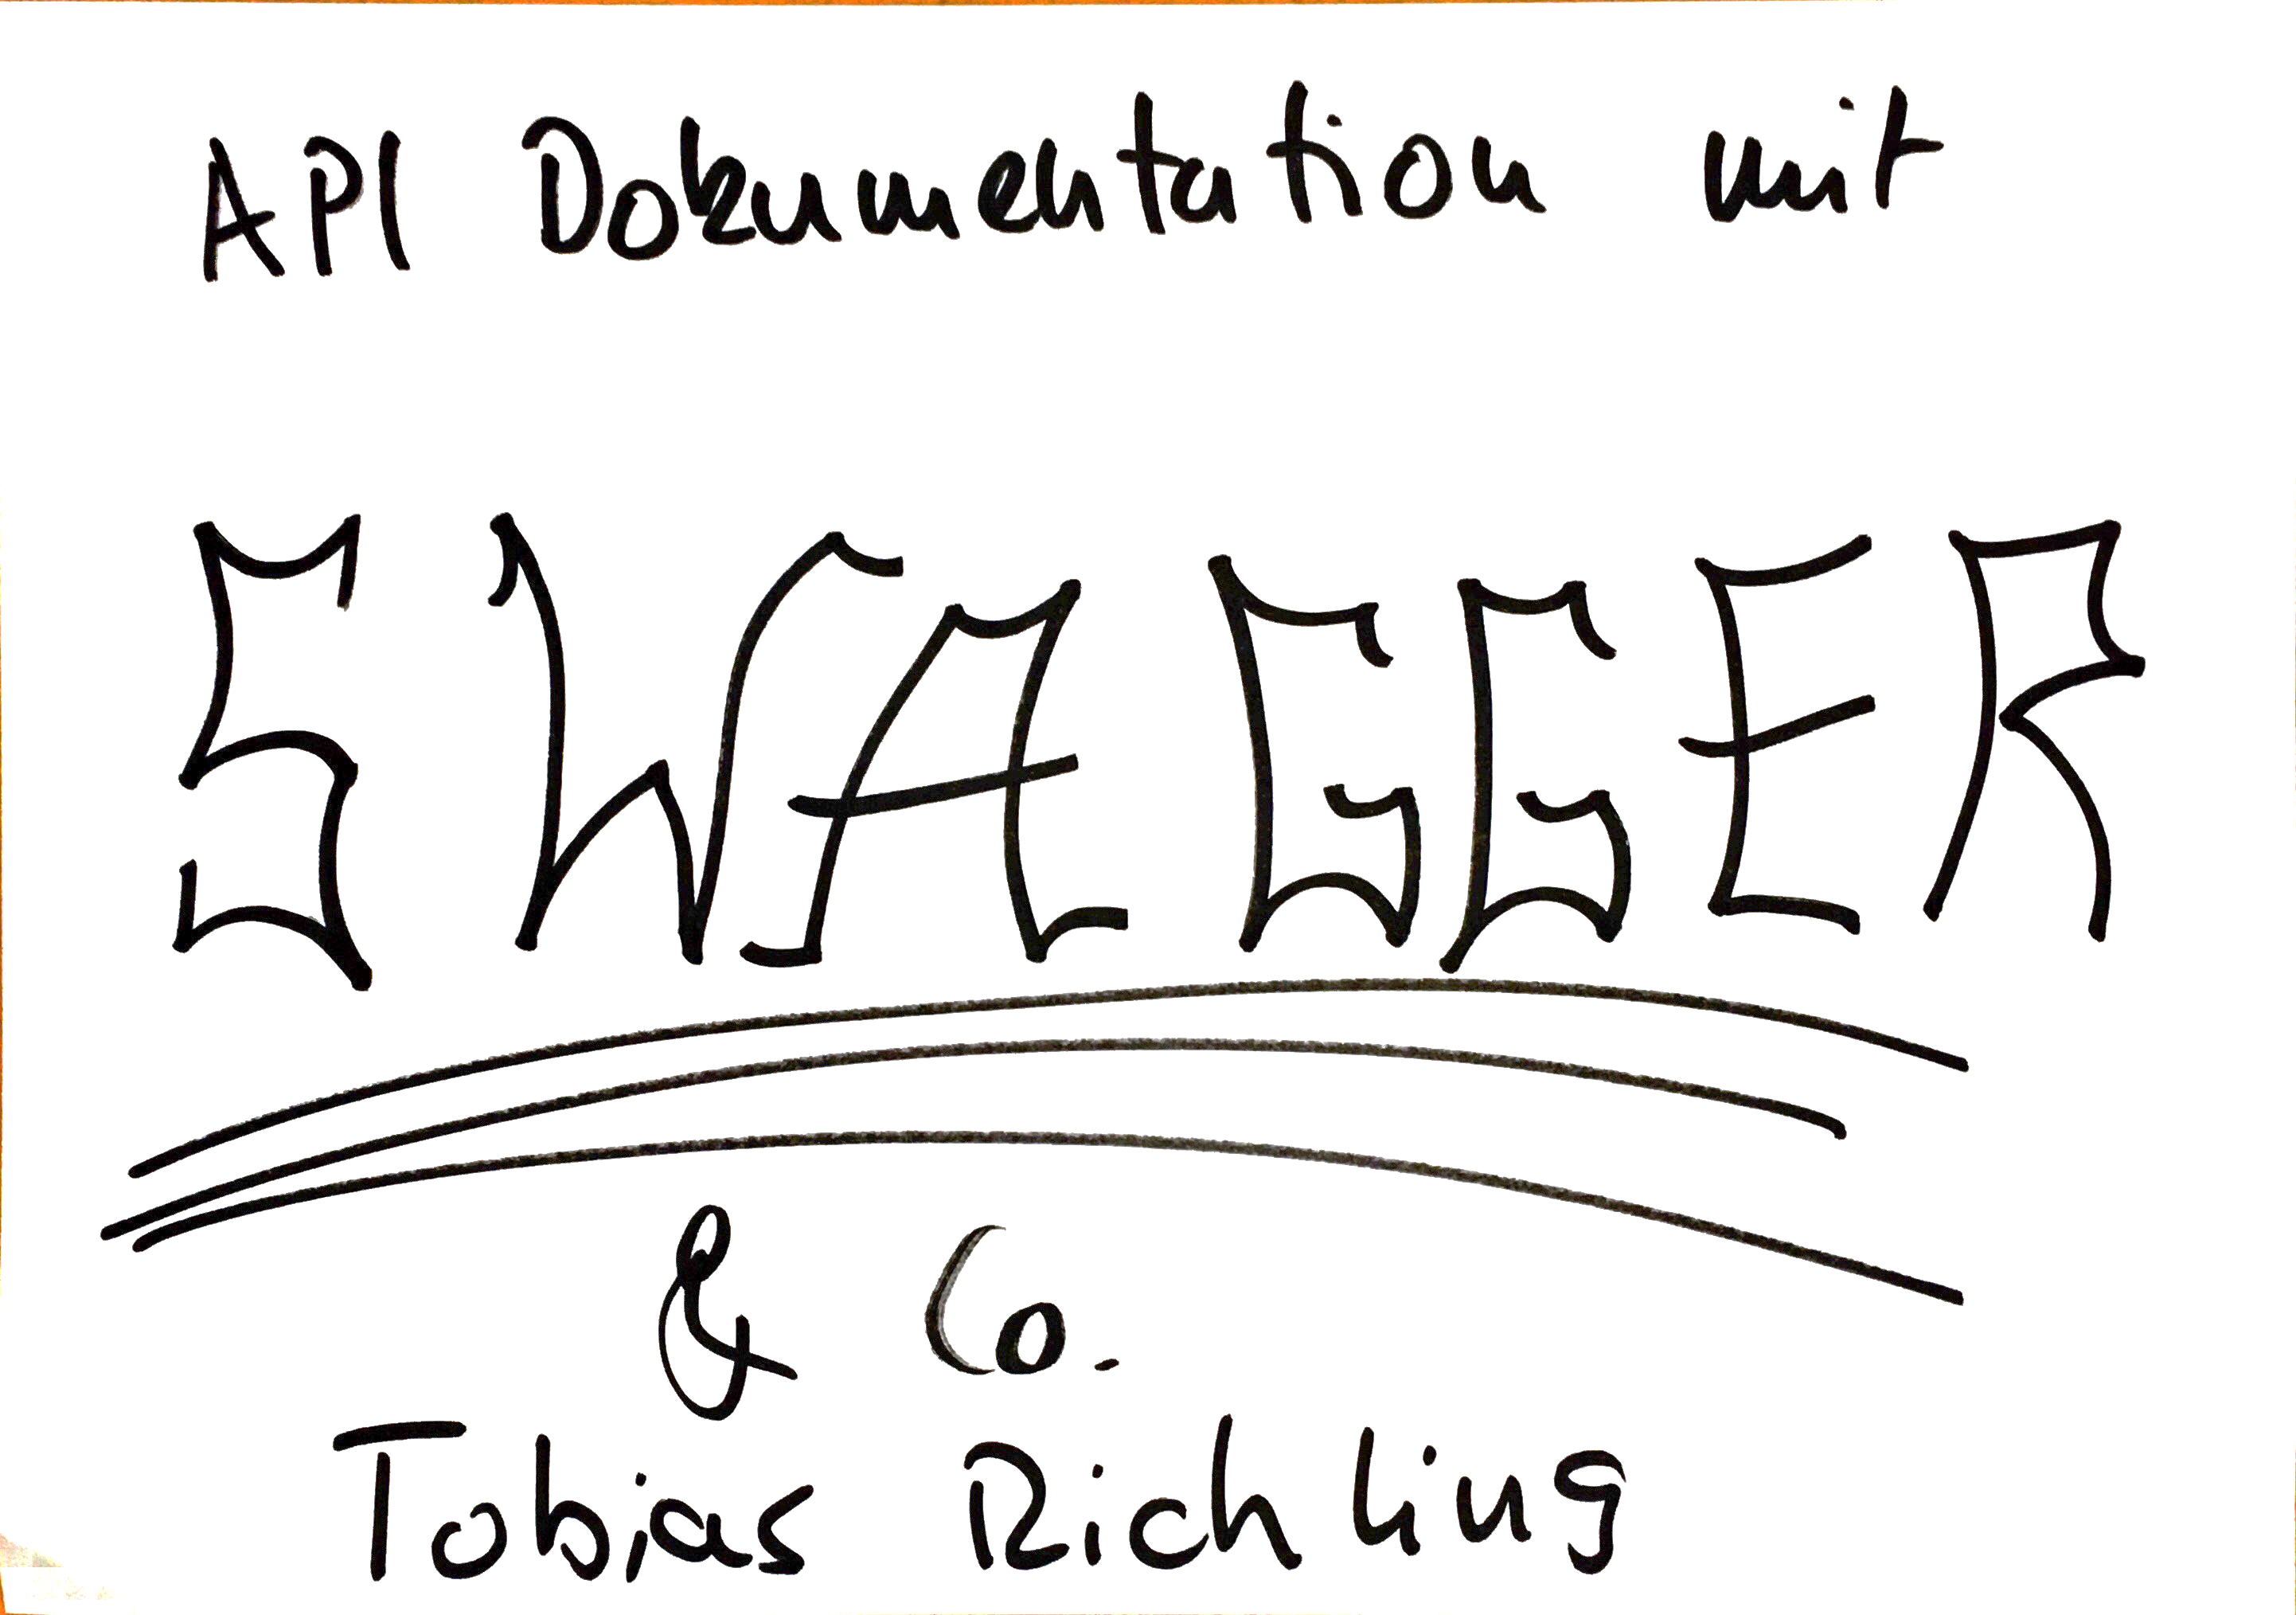 API Dokumentation mit
SWAGGER
& Co.
Tobias Richling